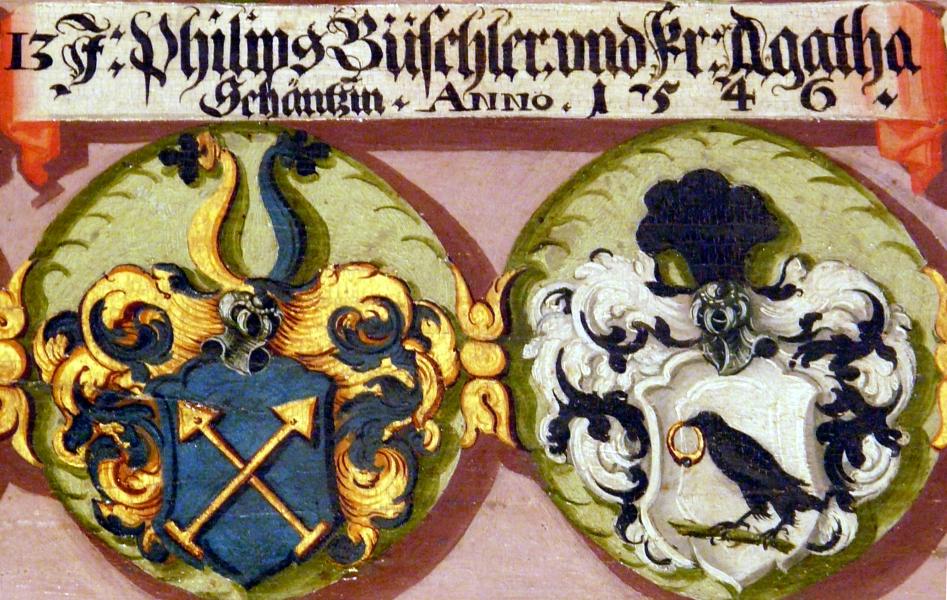 13 J: Philips Büschler: vnd Fr: Agatha
Schäntzin. ANNO. 1546.